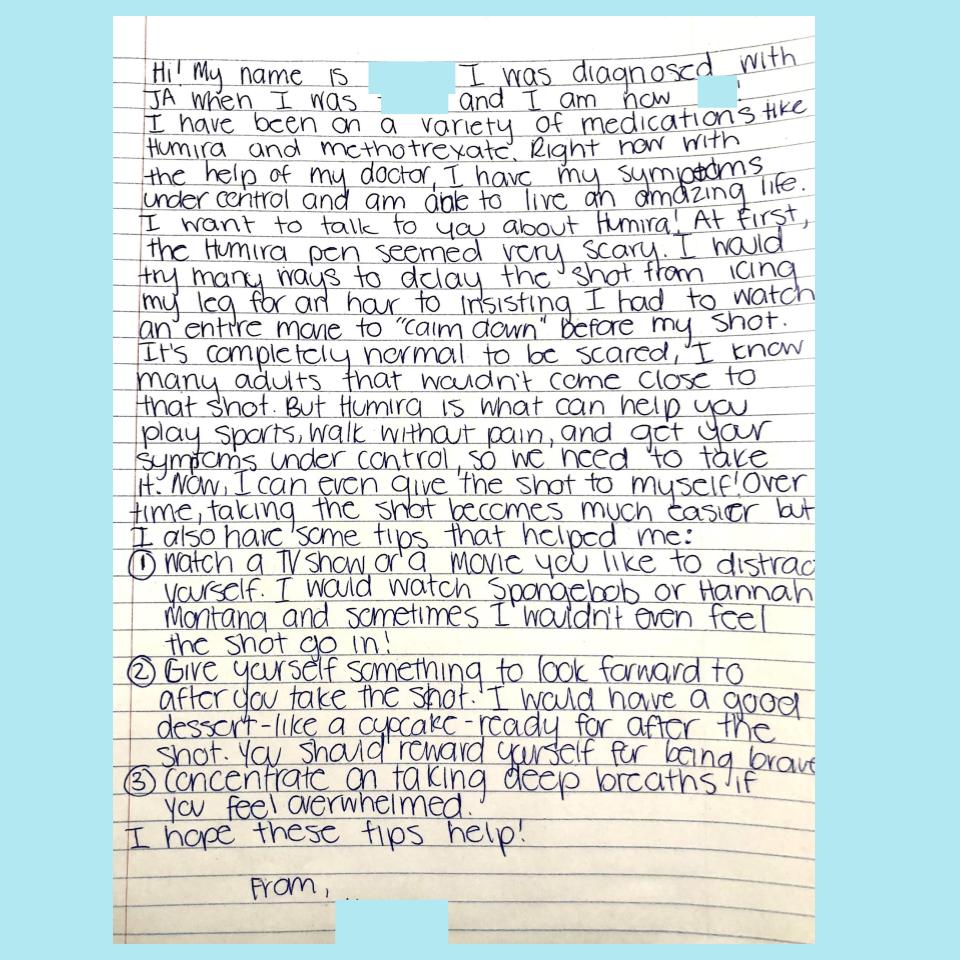 Hi! My name is I was diagnosed with
JA when I was and I am now
I have been on a variety of medications like
Humira and methotrexate. Right now with
the help of my doctor, I have my symptoms
under control and am able to live an amazing life.
I want to talk to you about Humira! At first,
the Humira pen seemed very scary. I would
try many ways to delay the shot from icing
my leg for an hour to insisting I had to watch
an entire movie to "calm down" before my shot.
It's completely normal to be scared, I know
many adults that wouldn't come close to
that shot. But Humira is what can help you
play sports, walk without pain, and get your
symptoms under control, so we need to take
it. Now, I can even give the shot to myself! Over
time, taking the shot becomes much easier but
I also have some tips that helped me:
① Watch a TV show or a movie you like to distrac
yourself. I would watch Spongebob or Hannah
Montana and sometimes I wouldn't even feel
the shot go in!
② Give yourself something to look forward to
after you take the shot. I would have a good
dessert-like a cupcake-ready for after the
shot. You should reward yourself for being brave
③ Concentrate on taking deep breaths if
you feel overwhelmed.
I hope these tips help!
From,